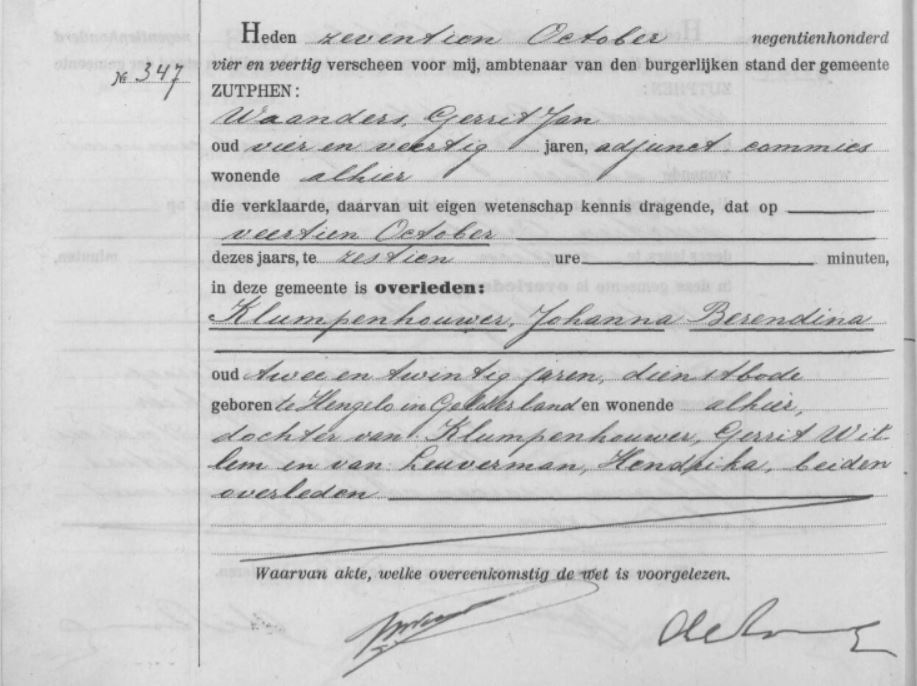 Heden zeventien October negentienhonderd
№ 347 vier en veertig verscheen voor mij, ambtenaar van den burgerlijken stand der gemeente
ZUTPHEN:
Waanders, Gerrit Jan
oud vier en veertig jaren, adjunct commies
wonende alhier
die verklaarde, daarvan uit eigen wetenschap kennis dragende, dat op
veertien October
dezes jaars, te zestien ure minuten,
in deze gemeente is overleden:
Klumpenhouwer, Johanna Berendina
oud twee en twintig jaren, dienstbode
geboren te Hengelo in Gelderland en wonende alhier,
dochter van: Klumpenhouwer, Gerrit Wil-
lem en van: Leuverman, Hendrika, beiden
overleden
Waarvan akte, welke overeenkomstig de wet is voorgelezen.